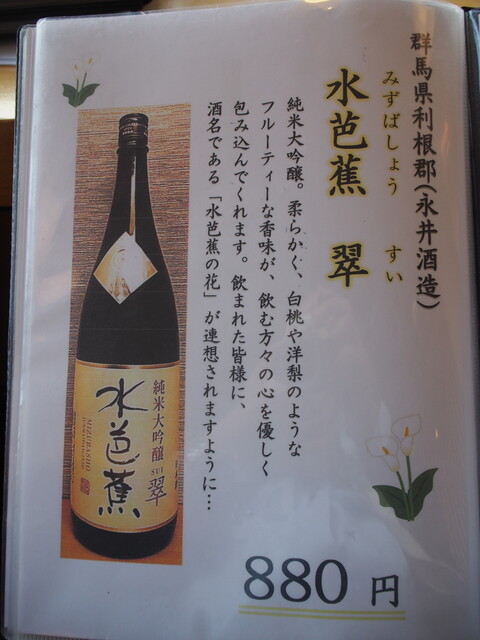 群馬県利根郡(永井酒造)
みずばしょう すい
水芭蕉 翠
純米大吟醸。柔らかく、白桃や洋梨のような
フルーティーな香味が、飲む方々の心を優しく
包み込んでくれます。飲まれた皆様に、
酒名である「水芭蕉の花」が連想されますように…
純米大吟醸 SUI 翠
水芭蕉
MIZUBASHO
880円